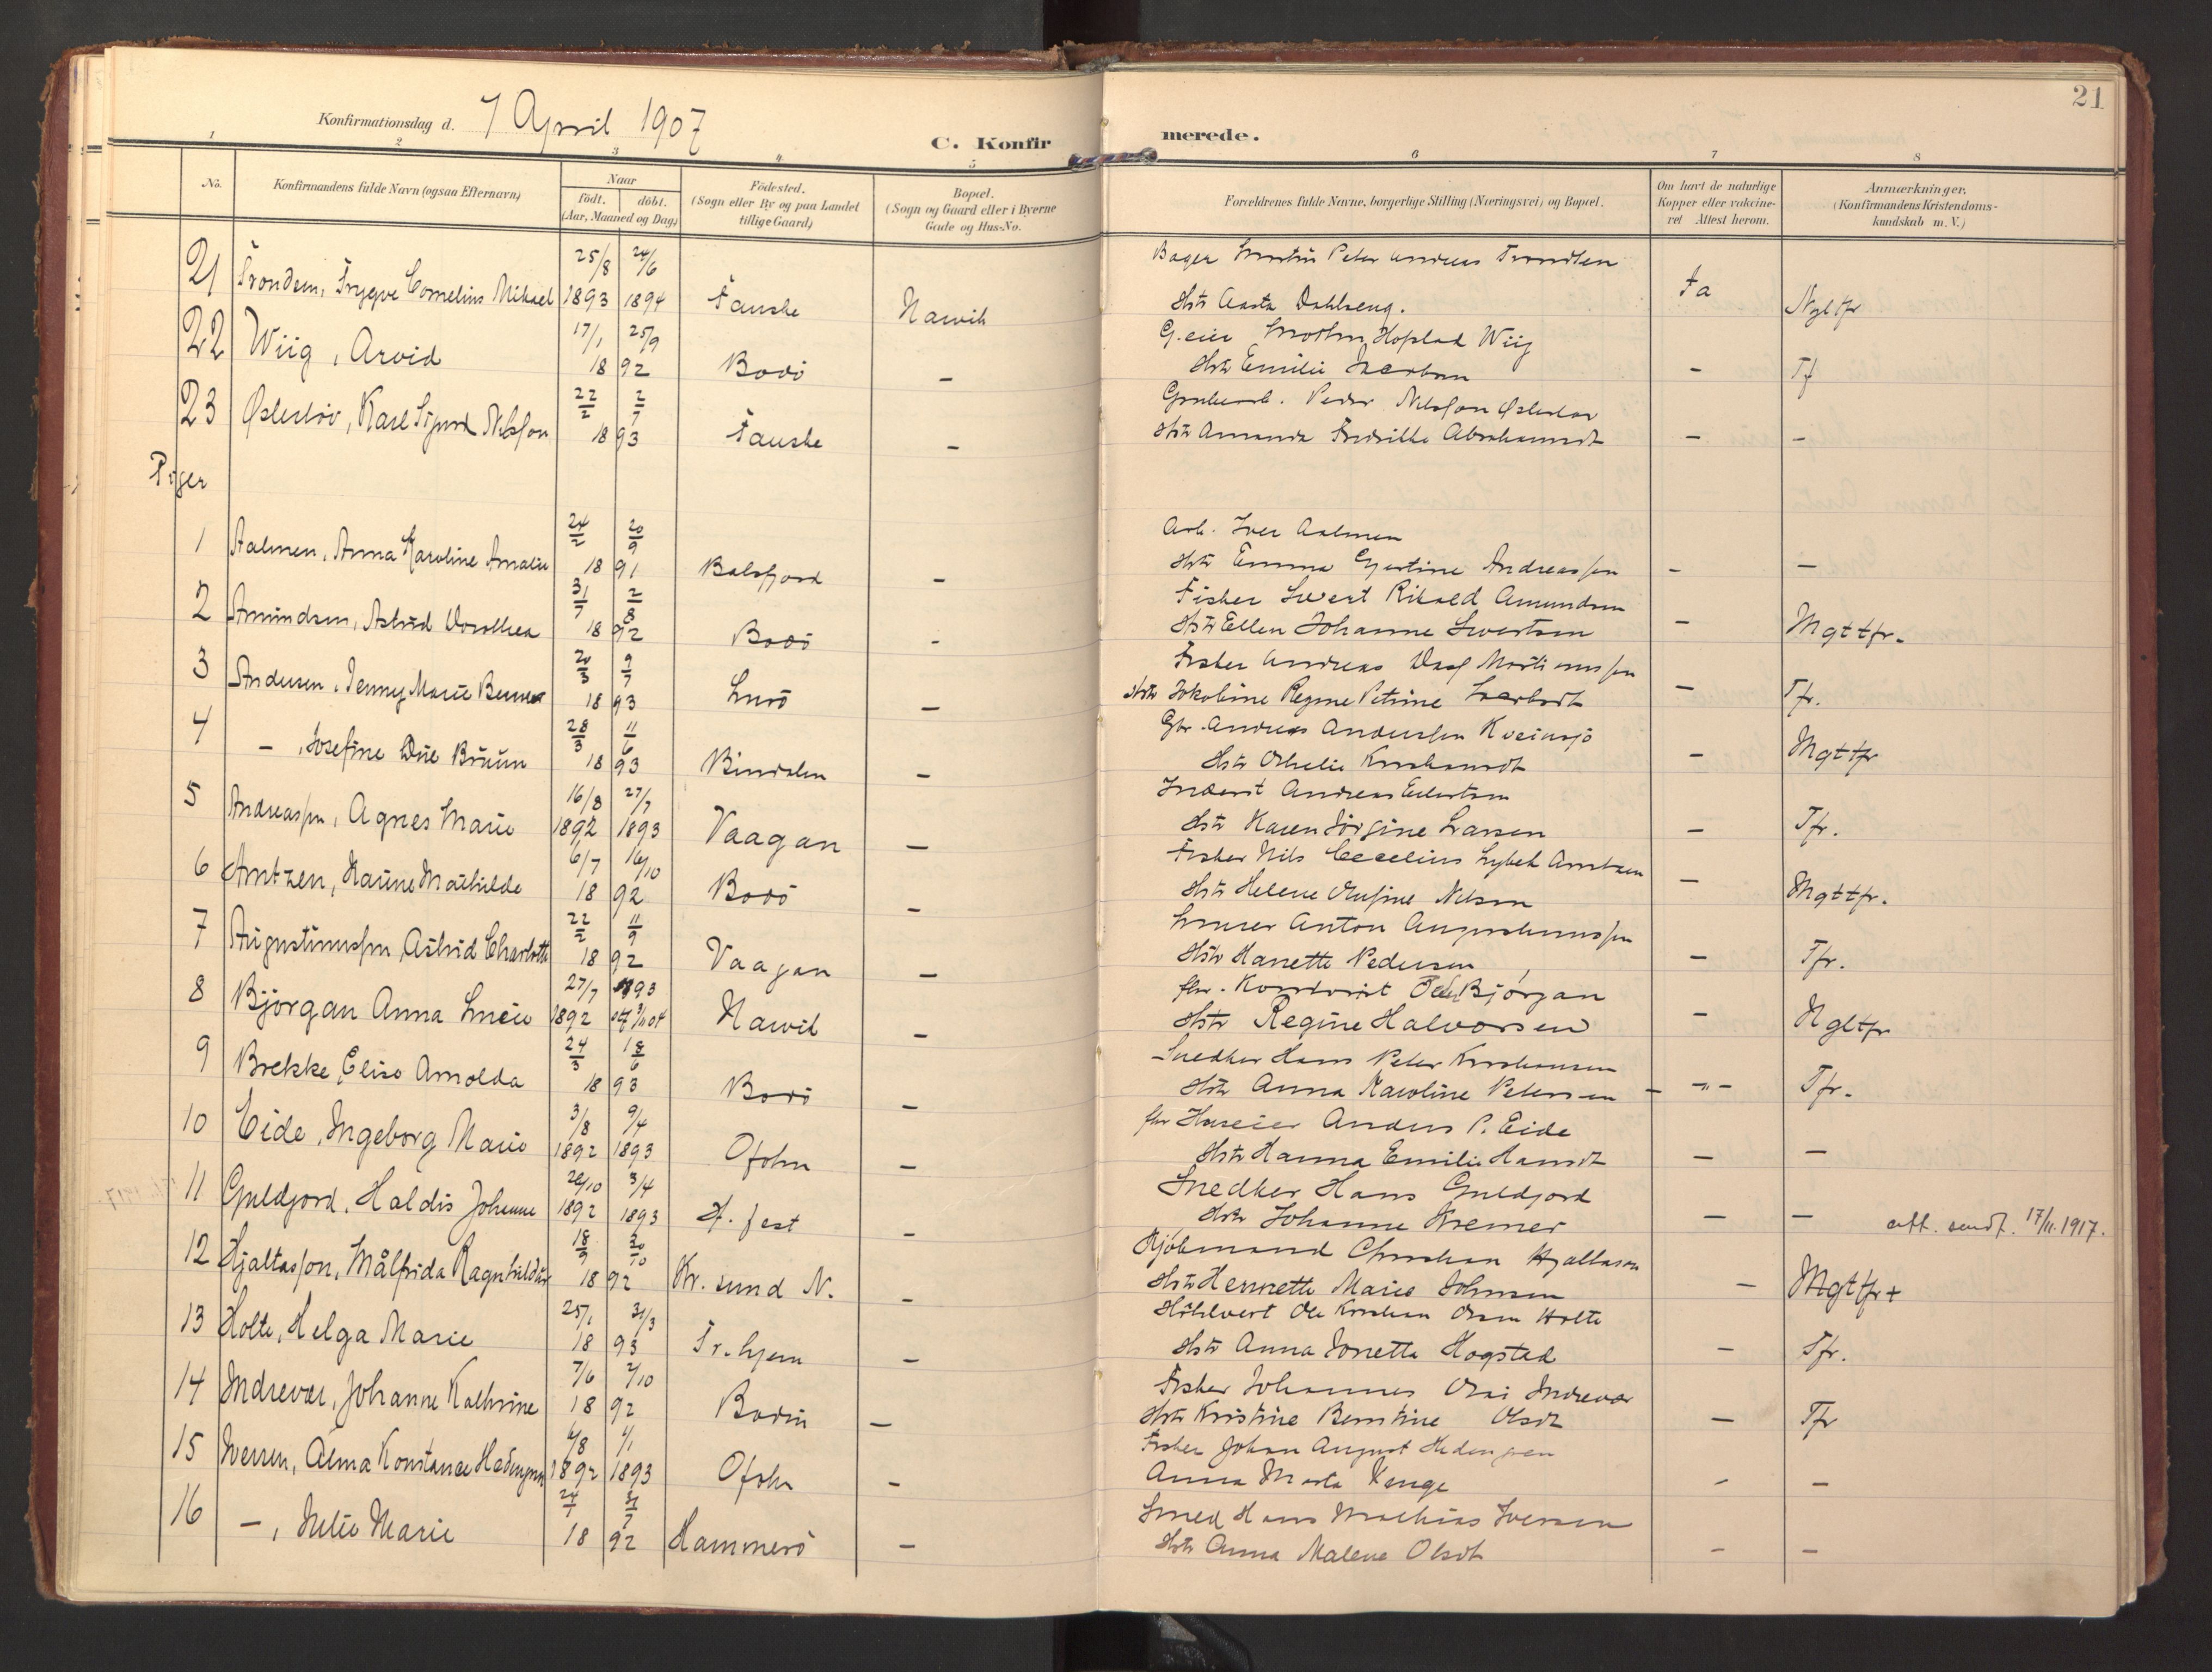 21
Konfirmationsdag d. 7 April 1907
C. Konfirmerede.
1 2 3 4 5 6 7 8
No.
Konfirmandens fulde Navn (ogsaa Efternavn)
Naar
födt. döbt.
(Aar, Maaned og Dag)
Födested.
(Sogn eller By og paa Landet
tillige Gaard)
Bopæl.
(Sogn og Gaard eller i Byerne
Gade og Hus-No.
Forældrenes fulde Navne, borgerlige Stilling (Næringsvei) og Bopæl.
Om havt de naturlige
Kopper eller vakcine-
ret Attest herom.
Anmærkninger.
(Konfirmandens Kristendoms-
kundskab m. V.)
21 Trondsen, Trygve Cornelius Mikael 25/8 1893 24/6 1894 Fauske Narvik Bager Martin Peter Andreas Trondsen
Hstr Aasta Dahlseng. Ja Ngltfr
22 Wiig, Arvid 17/1 25/9 1892 Bodö – G.eier Hopstad Wiig
Hstr Emilie – Tf
23 Østerlöv, Karl Sigurd Nilsson 22/2 2/7 1893 Fauske – Peder Nilsson Østerlöv
Hstr Amanda Fredrikke Abrahamsdt – –
Piger
1 Aalmen, Anna Karoline Amalie 24/2 20/9 1891 Balsfjord – Arb. Iver Aalmen
Hstr Emma Andreassen – –
2 Amundsen, Astrid Dorothea 31/7 2/8 1892 Bodö – Fisker Sivert Rikald Amundsen
Hstr Ellen Johanne Sivertsen – Mgttfr.
3 Andersen, Jenny Marie 20/3 9/7 1893 Lurö – Fisker Andreas
Hstr Jakobine Regine Petrine – Tfr.
4 –, Josefine Due Bruun 28/3 11/6 1893 Bindalen – Gbr. Andreas Andersen Kveinsjö
Hstr Othelie – Mgttfr
5 Andreassen, Agnes Marie 16/8 1892 27/7 1893 Vaagan – Inderst Andreas
Hstr Karen Jörgine Larsen – Tfr.
6 Arntzen, Karine Mathilde 6/7 16/10 1892 Bodö – Fisker Nils Cecelius Lybek Arntzen
Hstr Helene Nilsen – Mgttfr.
7 Augustinussen, Astrid Charlotte 22/2 11/9 1892 Vaagan – Murer Anton Augustinussen
Hstr Hanette Pedersen – Tfr.
8 Björgan Anna Lucie 27/7 1892 Narvik – fhv. Björgan
Hstr Regine Halvorsen – Ngltfr
9 Brekke, Elise Arnolda 24/3 18/6 1893 Bodö – Snedker Hans Peter
Hstr Anna Karoline Petersen – –"– Tfr.
10 Eide, Ingeborg Marie 3/8 1892 9/4 1893 Ofoten – fhv Huseier Anders P. Eide
Hstr Hanna Emilie Hansdt – –
11 Guldjord, Haldis Johanne 26/10 1892 3/4 1893 H.fest – Snedker Hans Guldjord
Hstr Johanne Kremer – – att. sendt. 17/11.1917.
12 Hjaltasson, Målfrida 18/9 30/10 1892 Kr.sund N. – Christian Hjaltason
Hstr Henrette Marie Johnsen – Mgttfr+
13 Holte, Helga Marie 25/1 31/3 1893 Tr.hjem – Ole Kristian Olsen Holte
Hstr Anna Jonetta Hogstad – Tfr.
14 Indrevær, Johanne Kathrine 7/6 2/10 1892 Bodin – Fisker Johannes Indrevær
Hstr Kristine Berntine Olsdt – Tfr
15 Iversen, Alma Konstance 1892 1893 Ofoten – Fisker Johan August
Anna Marta – –
16 –, Julie Marie 24/1 31/7 1892 Hammerö – Smed Hans Mathias Iversen
Hstr Anna Malene Olsdt – –